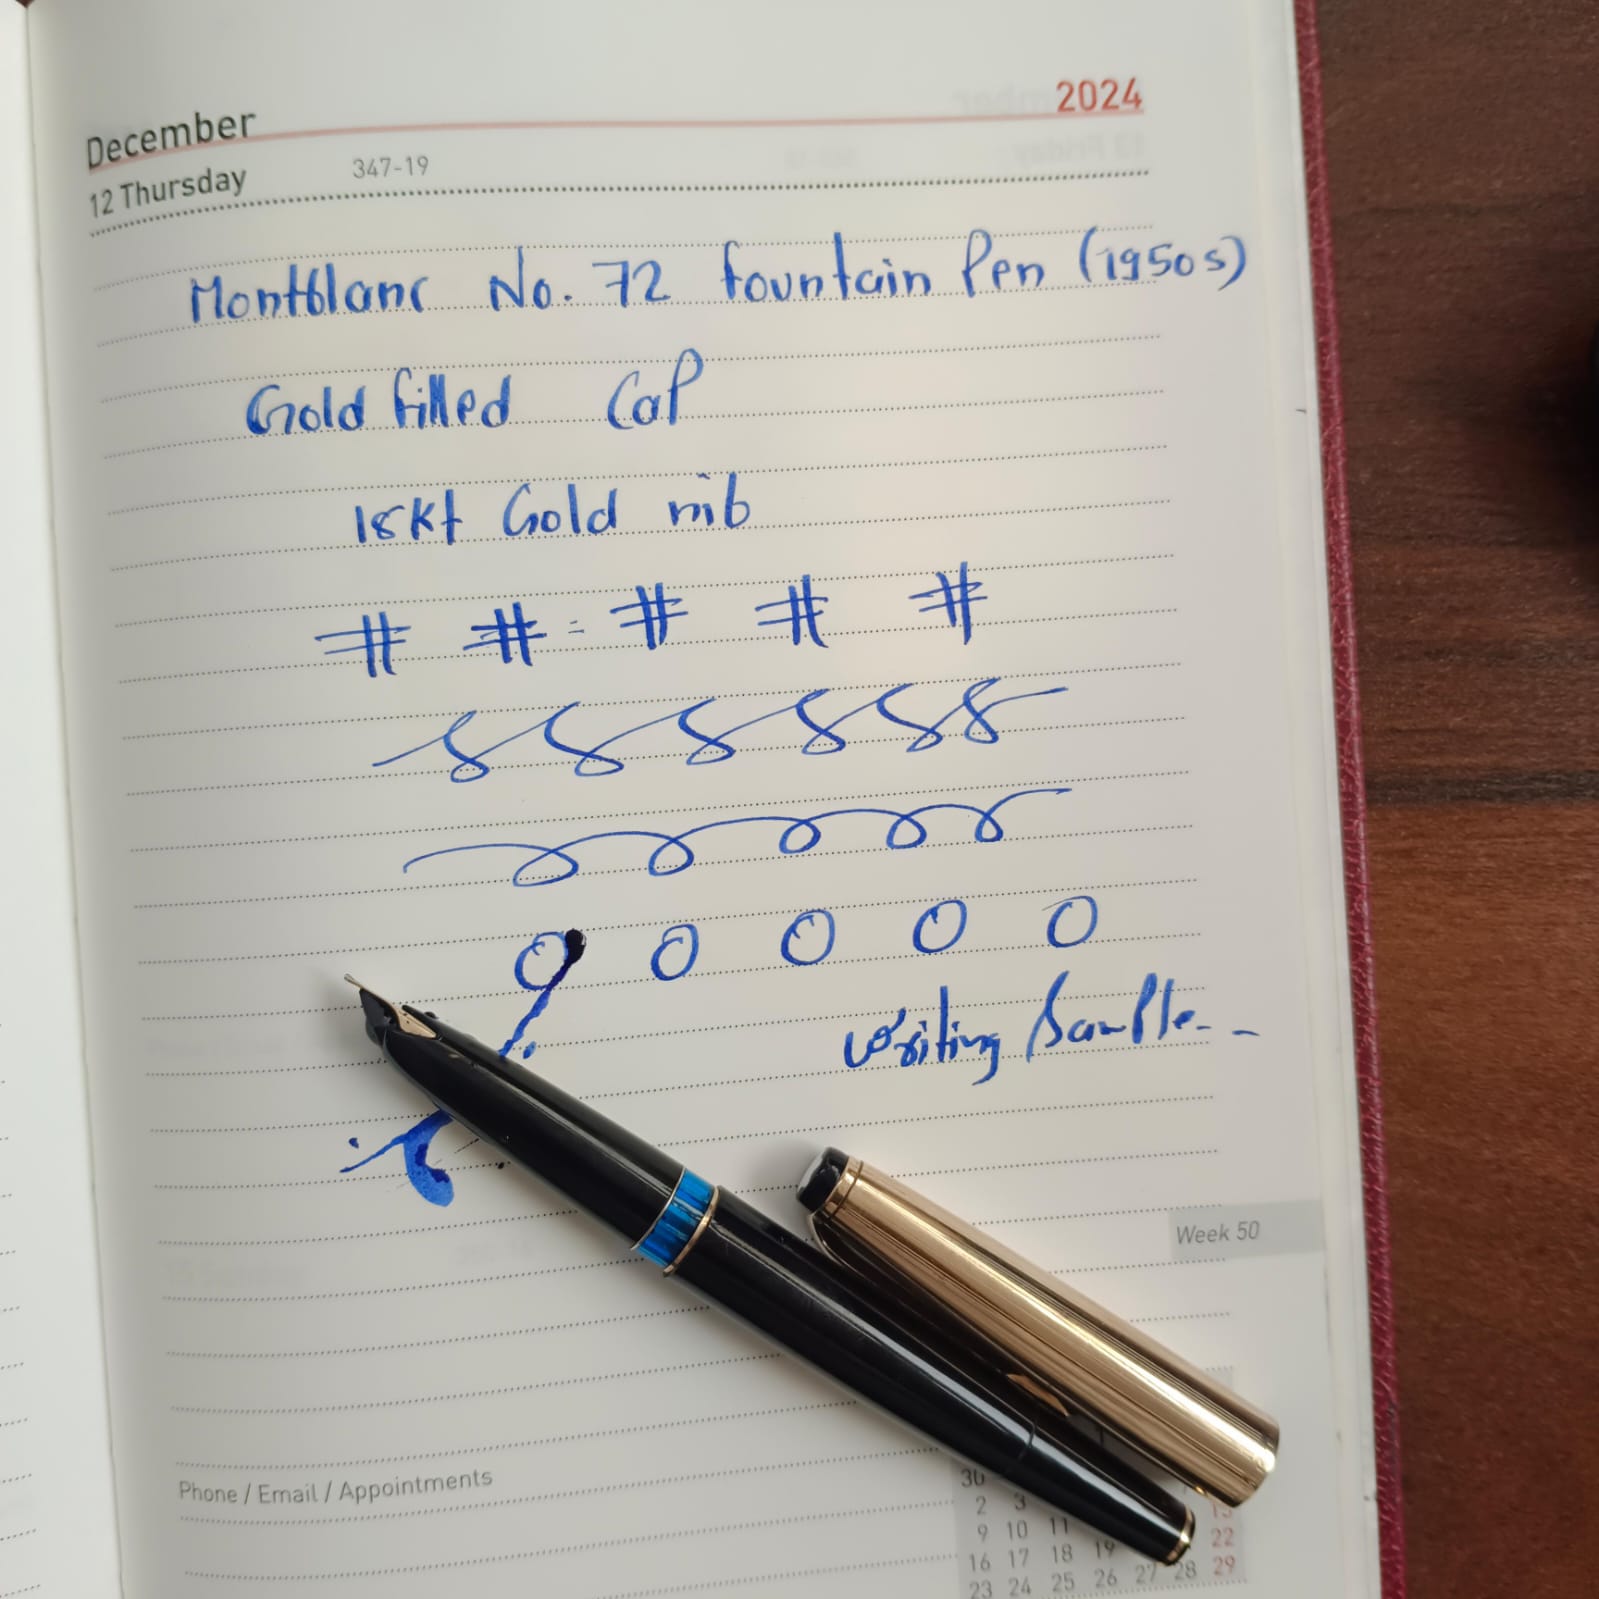 December 2024
12 Thursday 347-19
Montblanc No. 72 fountain Pen (1950s)
Gold filled Cap
18kt Gold nib
# # = # # #
8 8 8 8 8 8
O O O O O
Writing Sample--
Week 50
Phone / Email / Appointments
30 1
2 3 15
9 10 11 22
16 17 18 19 29
23 24 25 26 27 28